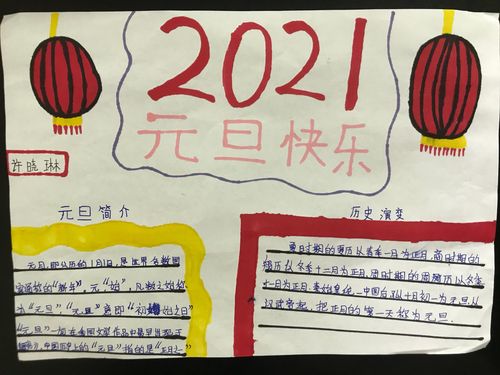 2021
元旦快乐
许晓琳
元旦简介
元旦,即公历的1月1日,是世界多数国
家通称的“新年”。元,“始”,凡数之始称
为“元”;“元旦”意即“初始之日”
“元旦”一词在中国文学作品中最早出现于
中国历史上的“元旦”指的是“正月一
历史演变
夏时期的夏历以春季一月为正月,商时期的
殷历以冬季十二月为正月,周时期的周历以冬季
十一月为正月.秦始皇统一中国后,以十月初一为元旦,从
汉武帝起,把正月的第一天称为元旦.